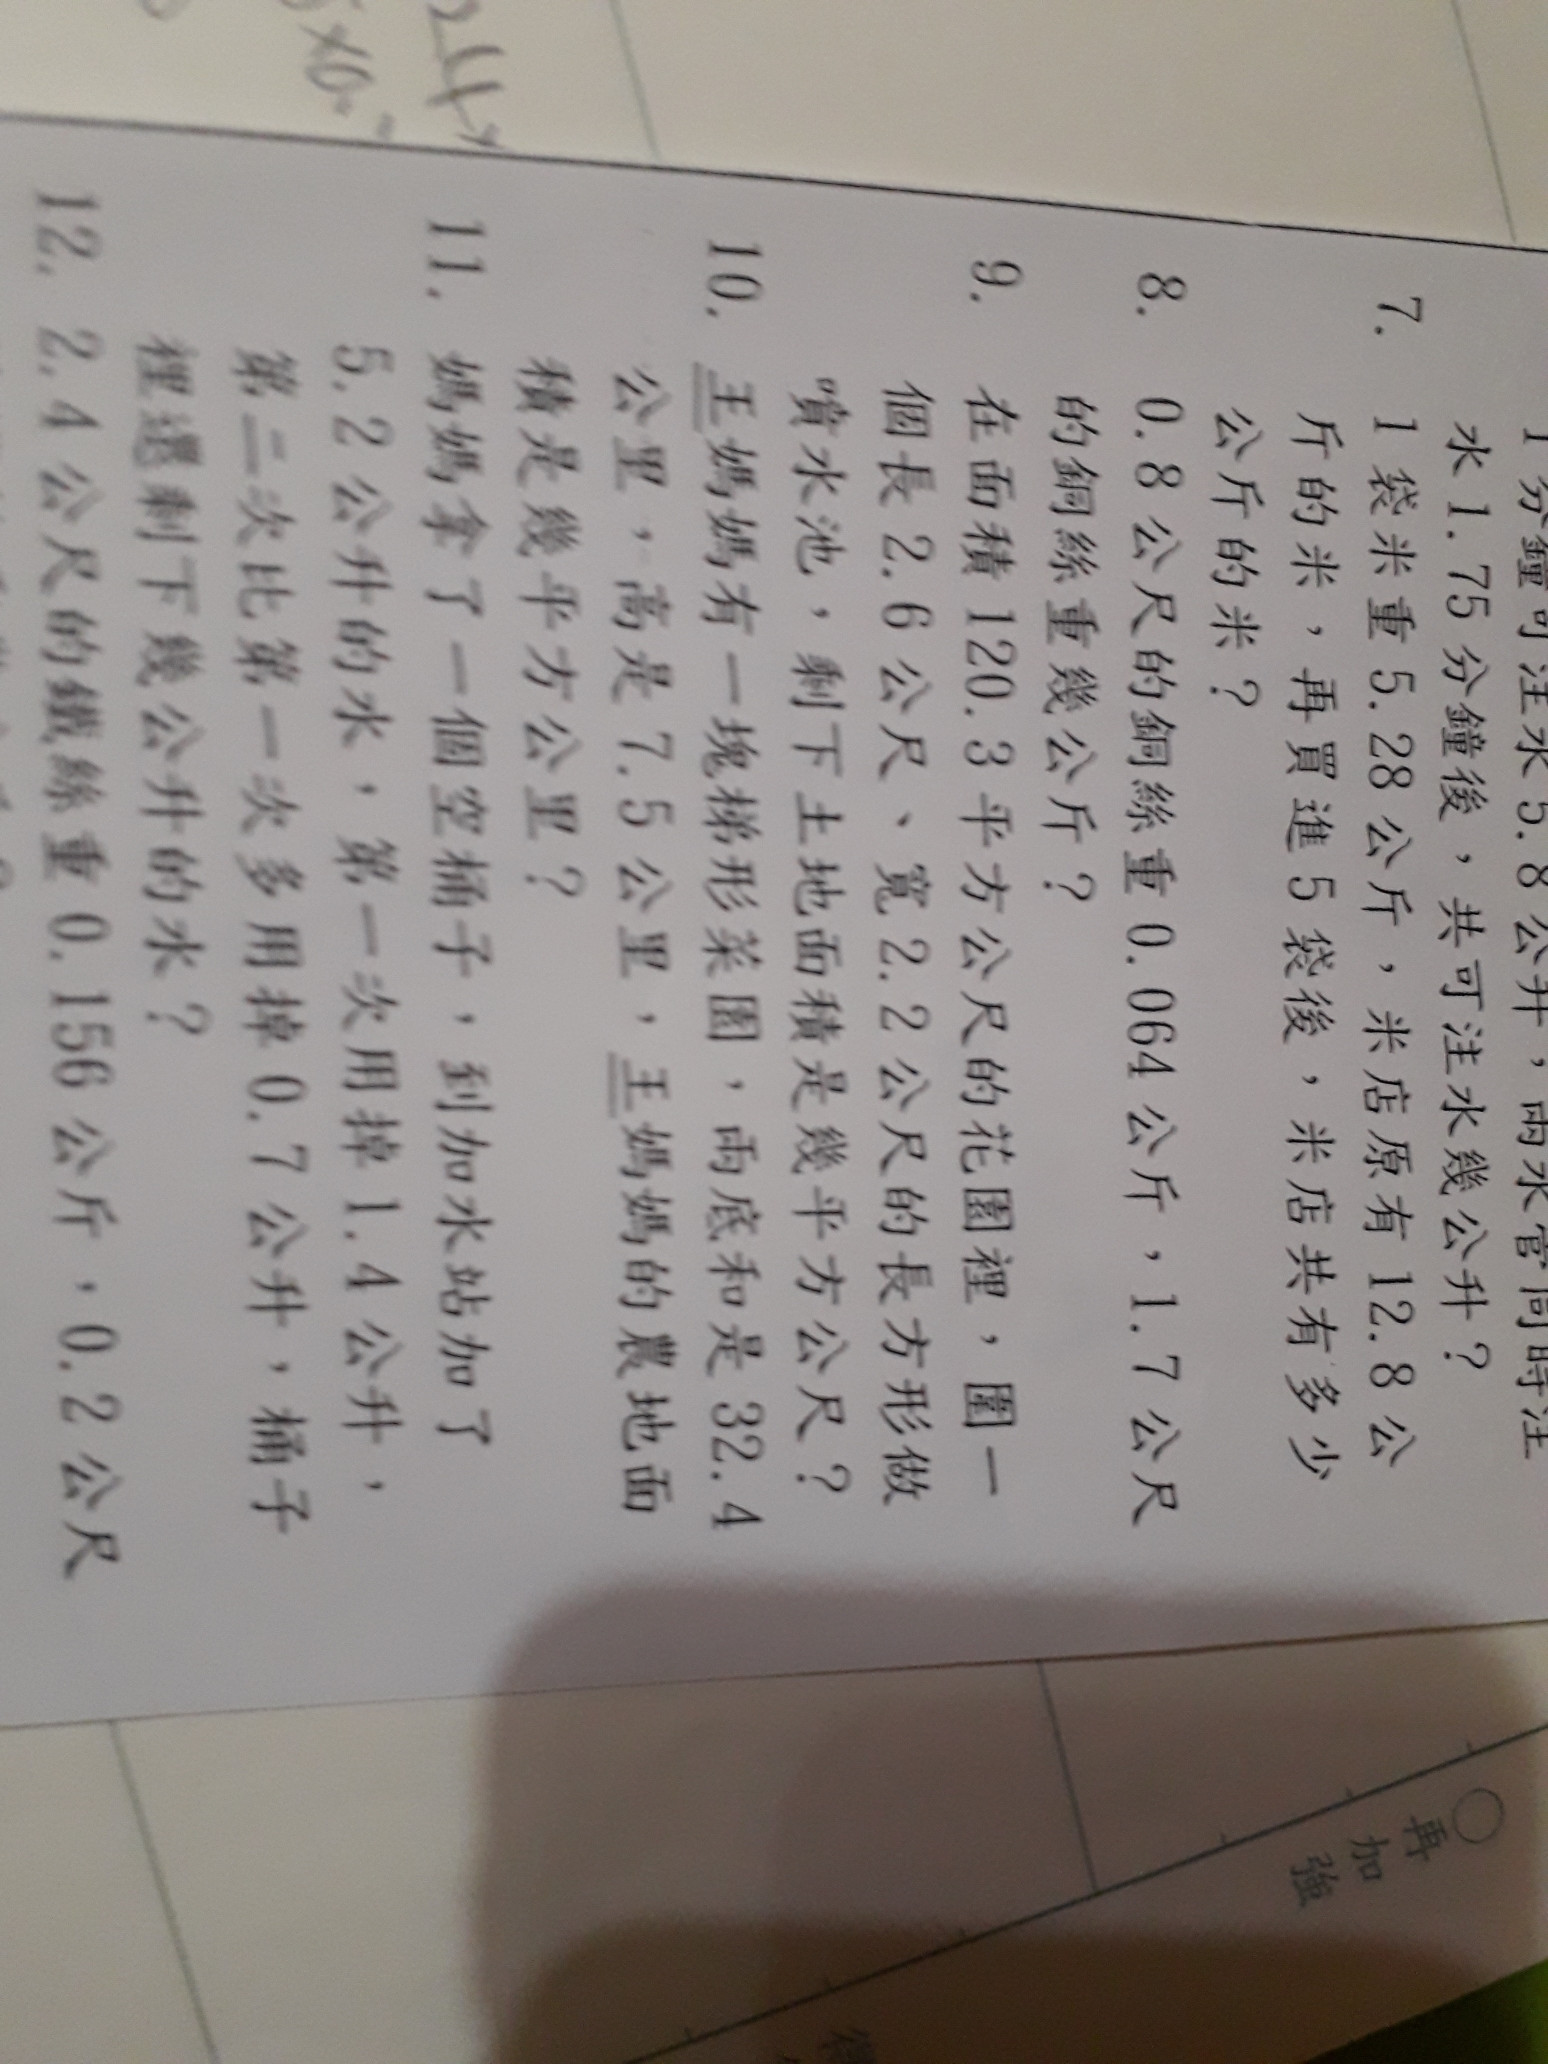 1分鐘可注水5.8公升，兩水管同時注
水1.75分鐘後，共可注水幾公升？
7. 1袋米重5.28公斤，米店原有12.8公
斤的米，再買進5袋後，米店共有多少
公斤的米？
8. 0.8公尺的銅絲重0.064公斤，1.7公尺
的銅絲重幾公斤？
9. 在面積120.3平方公尺的花園裡，圍一
個長2.6公尺、寬2.2公尺的長方形做
噴水池，剩下土地面積是幾平方公尺？
10. 王媽媽有一塊梯形菜園，兩底和是32.4
公里，高是7.5公里，王媽媽的農地面
積是幾平方公里？
11. 媽媽拿了一個空桶子，到加水站加了
5.2公升的水，第一次用掉1.4公升，
第二次比第一次多用掉0.7公升，桶子
裡還剩下幾公升的水？
12. 2.4公尺的鐵絲重0.156公斤，0.2公尺
○再加強